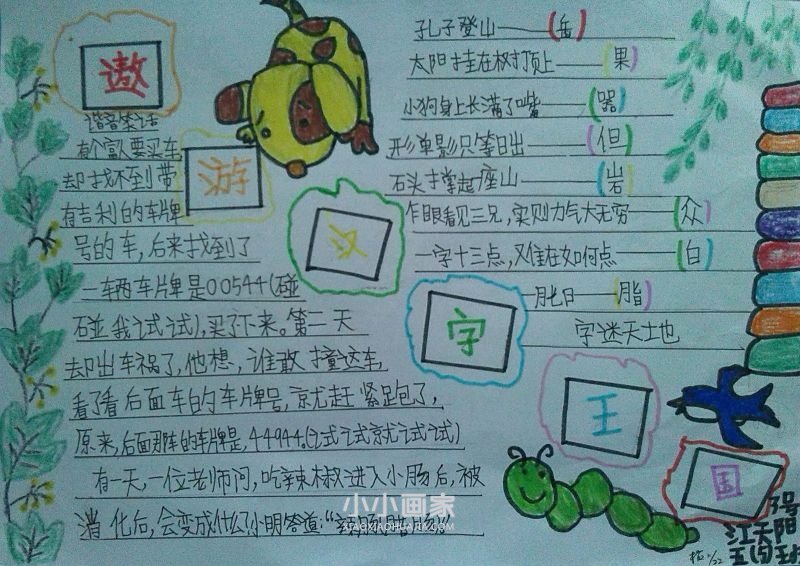 遨
游
汉
字
王
国
谐音笑话
有个富人要买车
却找不到带
有吉利的车牌
号的车,后来找到了
一辆车牌是00544(碰
碰我试试),买了下来。第二天
却出车祸了,他想,谁敢撞这车,
看了看后面车的车牌号,就赶紧跑了,
原来,后面那车的车牌是,44944.(试试就试试)
有一天,一位老师问,吃辣椒进入小肠后,被
消化后,会变成什么?小明答道:“
孔子登山——(岳)
太阳挂在树顶上——(果)
小狗身上长满了嘴——(器)
形单影只等日出——(但)
石头撑起座山——(岩)
乍眼看见三兄,实则力气大无穷——(众)
一字十三点,又难在如何点——(白)
月比日——(脂)
字迷天土地
小小画家
XIAOXIAOHUAJIA.COM
号
江天阳